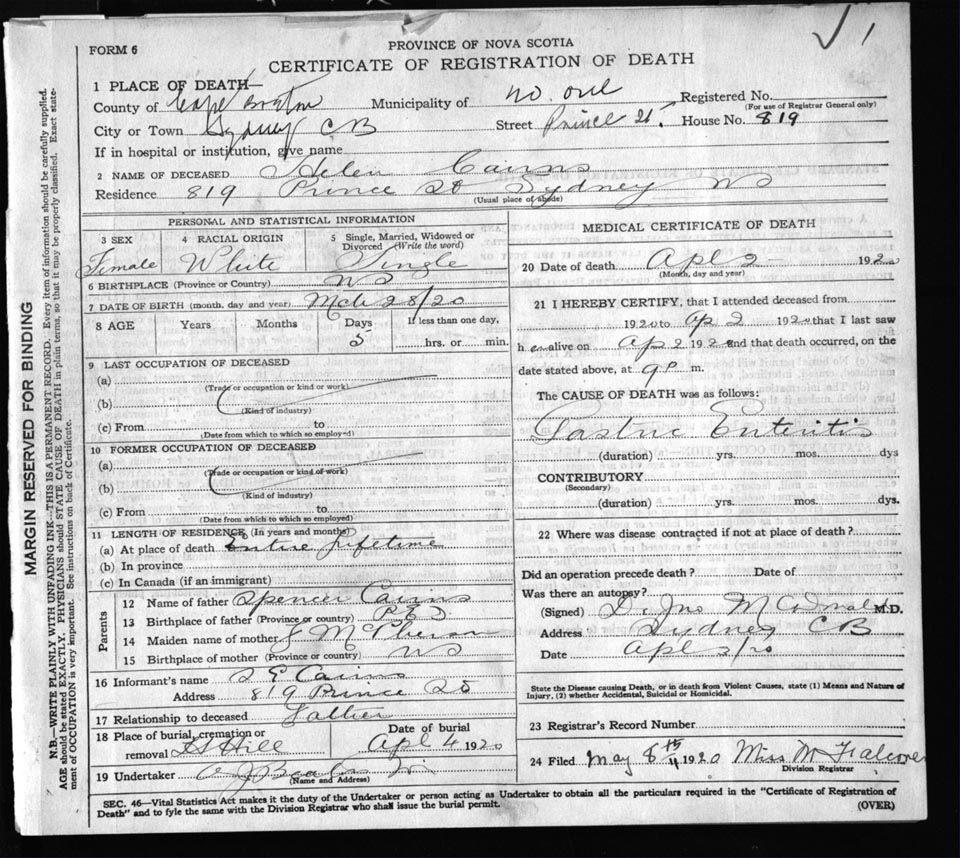 √ 1
FORM 6
PROVINCE OF NOVA SCOTIA
CERTIFICATE OF REGISTRATION OF DEATH
1 PLACE OF DEATH—
County of Cape Breton Municipality of no. one Registered No.
(For use of Registrar General only)
City or Town Sydney CB Street Prince St. House No. 819
If in hospital or institution, give name
2 NAME OF DECEASED Helen Cairns
Residence 819 Prince St Sydney NS
(Usual place of abode)
PERSONAL AND STATISTICAL INFORMATION
3 SEX 4 RACIAL ORIGIN 5 Single, Married, Widowed or Divorced (Write the word)
Female White Single
6 BIRTHPLACE (Province or Country) NS
7 DATE OF BIRTH (month, day and year) Mch 28/20
8 AGE Years Months Days If less than one day,
5 hrs. or min.
9 LAST OCCUPATION OF DECEASED
(a)
(Trade or occupation or kind or work)
(b)
(Kind of industry)
(c) From to
(Date from which to which so employed)
10 FORMER OCCUPATION OF DECEASED
(a)
(Trade or occupation or kind of work)
(b)
(Kind of industry)
(c) From to
(Date from which to which so employed)
11 LENGTH OF RESIDENCE (In years and months)
(a) At place of death Entire lifetime
(b) In province
(c) In Canada (if an immigrant)
Parents
12 Name of father Spencer Cairns
13 Birthplace of father (Province or country) PEI
14 Maiden name of mother J McPherson
15 Birthplace of mother (Province or country) NS
16 Informant's name S E Cairns
Address 819 Prince St
17 Relationship to deceased Father
18 Place of burial, cremation or removal Hill
Date of burial Apl 4 1920
19 Undertaker
(Name and Address)
MEDICAL CERTIFICATE OF DEATH
20 Date of death Apl 2 1920
(Month, day and year)
21 I HEREBY CERTIFY, that I attended deceased from
1920 to Ap 2 1920 that I last saw
h er alive on Ap 2 1920 and that death occurred, on the
date stated above, at 9 P m.
The CAUSE OF DEATH was as follows:
Gastric Enteritis
(duration) yrs. mos. dys
CONTRIBUTORY
(Secondary)
(duration) yrs. mos. dys.
22 Where was disease contracted if not at place of death?
Did an operation precede death? Date of
Was there an autopsy?
(Signed) D. Jno McDonald M.D.
Address Sydney CB
Date Apl 3/20
State the Disease causing Death, or in death from Violent Causes, state (1) Means and Nature of
Injury, (2) whether Accidental, Suicidal or Homicidal.
23 Registrar's Record Number
24 Filed May 8th 1920 Miss M Falconer
Division Registrar
SEC. 46—Vital Statistics Act makes it the duty of the Undertaker or person acting as Undertaker to obtain all the particulars required in the "Certificate of Registration of
Death" and to fyle the same with the Division Registrar who shall issue the burial permit.
(OVER)
MARGIN RESERVED FOR BINDING
N.B.—WRITE PLAINLY WITH UNFADING INK—THIS IS A PERMANENT RECORD. Every item of information should be carefully supplied.
AGE should be stated EXACTLY. PHYSICIANS should STATE CAUSE OF DEATH in plain terms, so that it may be properly classified. Exact state-
ment of OCCUPATION is very important. See instructions on back of Certificate.